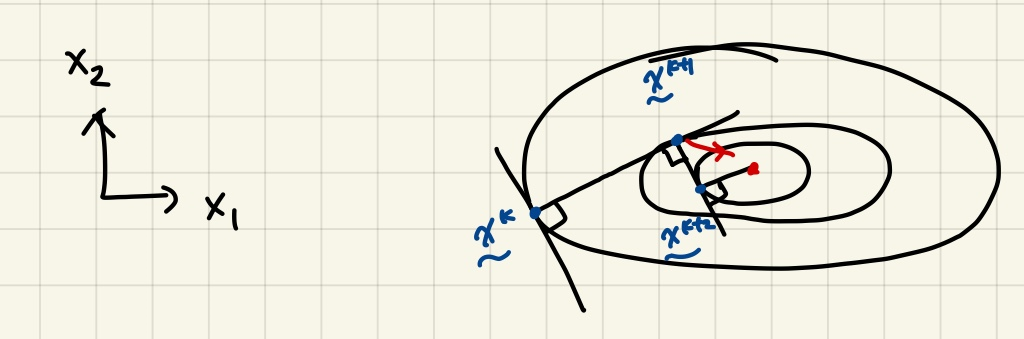 x₂
x₁
x^{k+1}
x^k
x^{k+2}